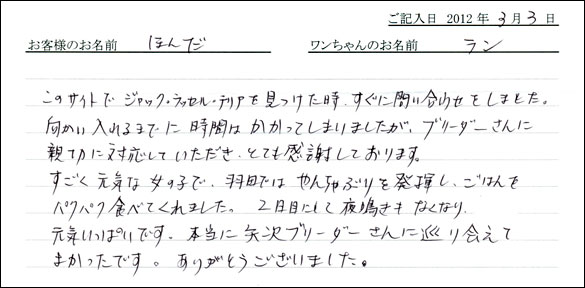 ご記入日 2012年 3月 3日
お客様のお名前 ほんだ ワンちゃんのお名前 ラン
このサイトで ジャック・ラッセル・テリアを見つけた時、すぐに問い合わせをしました。
向かい入れるまでに 時間は かかってしまいましたが、ブリーダーさんに
親切に対応していただき、とても感謝しております。
すごく元気な女の子で、羽田では やんちゃぶりを発揮し、ごはんを
パクパク食べてくれました。 2日目にして夜鳴きも なくなり、
元気いっぱいです。本当に矢次ブリーダーさんに巡り会えて
よかったです。ありがとうございました。